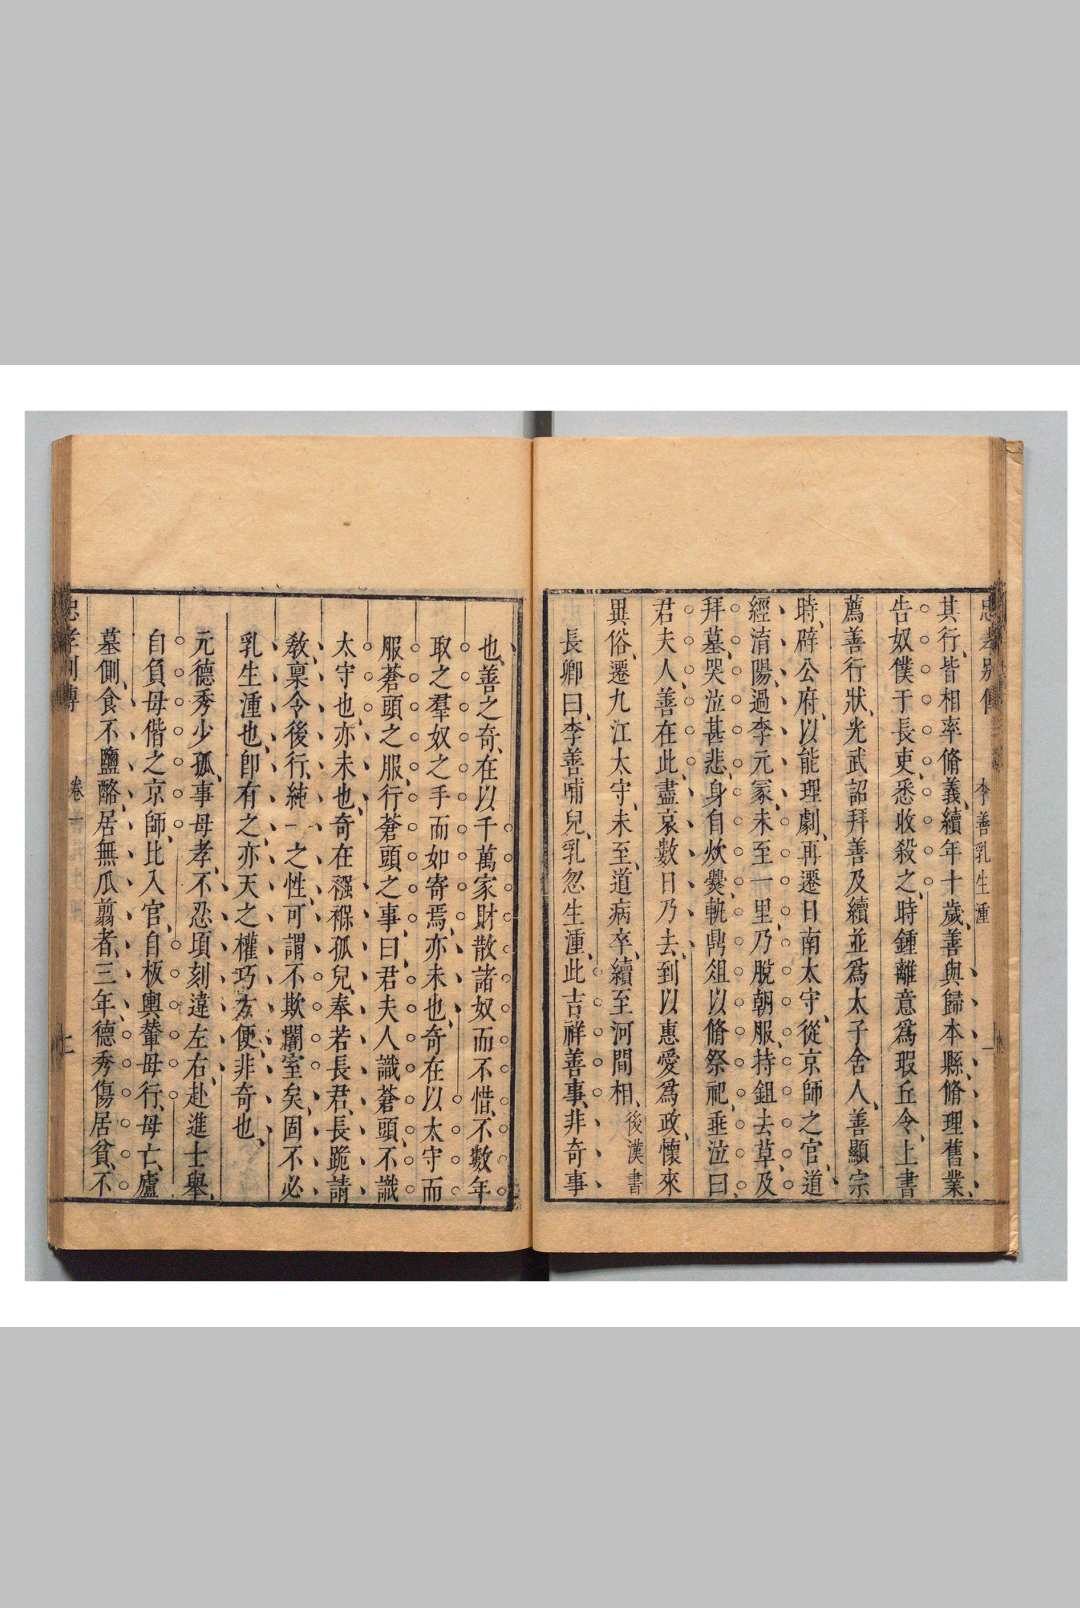 李善乳生湩
其行皆相率脩義續年十歲善與歸本縣脩理舊業
告奴僕于長吏悉收殺之時鍾離意爲瑕丘令上書
薦善行狀光武詔拜善及續並爲太子舍人善顯宗
時辟公府以能理劇再遷日南太守從京師之官道
經淯陽過李元冢未至一里乃脫朝服持鉏去草及
拜墓哭泣甚悲身自炊爨執鼎俎以脩祭祀垂泣曰
君夫人善在此盡哀數日乃去到以惠愛爲政懷來
異俗遷九江太守未至道病卒續至河間相後漢書
長卿曰李善哺兒乳忽生湩此吉祥善事非奇事
也善之奇在以千萬家財散諸奴而不惜不數年
取之羣奴之手而如寄焉亦未也奇在以太守而
服蒼頭之服行蒼頭之事曰君夫人識蒼頭不識
太守也亦未也奇在襁褓孤兒奉若長君長跪請
敎稟令後行純一之性可謂不欺闇室矣固不必
乳生湩也卽有之亦天之權巧方便非奇也
元德秀少孤事母孝不忍頃刻違左右赴進士舉
自負母偕之京師比入官自板輿輦母行母亡廬
墓側食不鹽酪居無瓜翦者三年德秀傷居貧不
忠孝別傳 卷一 七